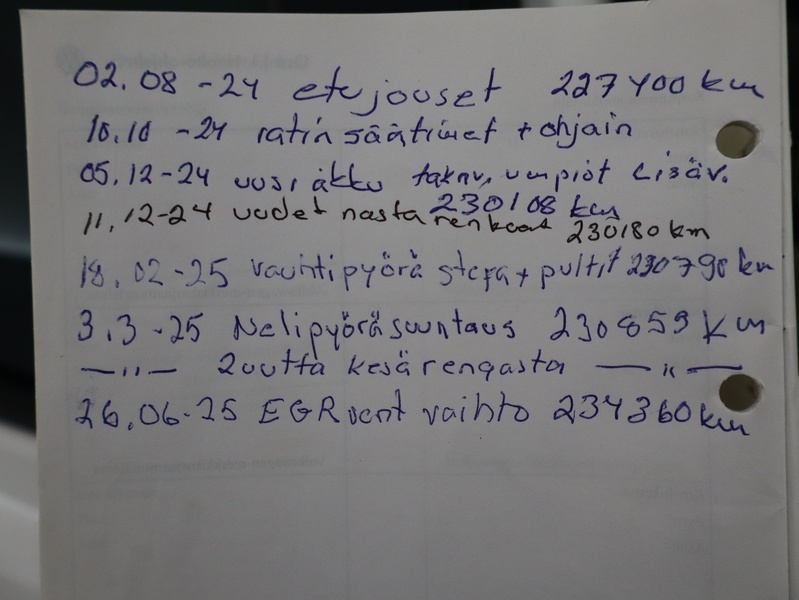 02.08 -24 etujouset 227400 km
10.10 -24 ratin säätimet + ohjain
05.12-24 uusi akku takav. umpiot Lisäv.
230108 km
11.12-24 uudet nastarenkaat 230180 km
18.02-25 vauhtipyörä stefa + pultit 230790 km
3.3-25 Nelipyöräsuuntaus 230859 km
—"— 2uutta kesärengasta —"—
26.06-25 EGR vent vaihto 234360 km